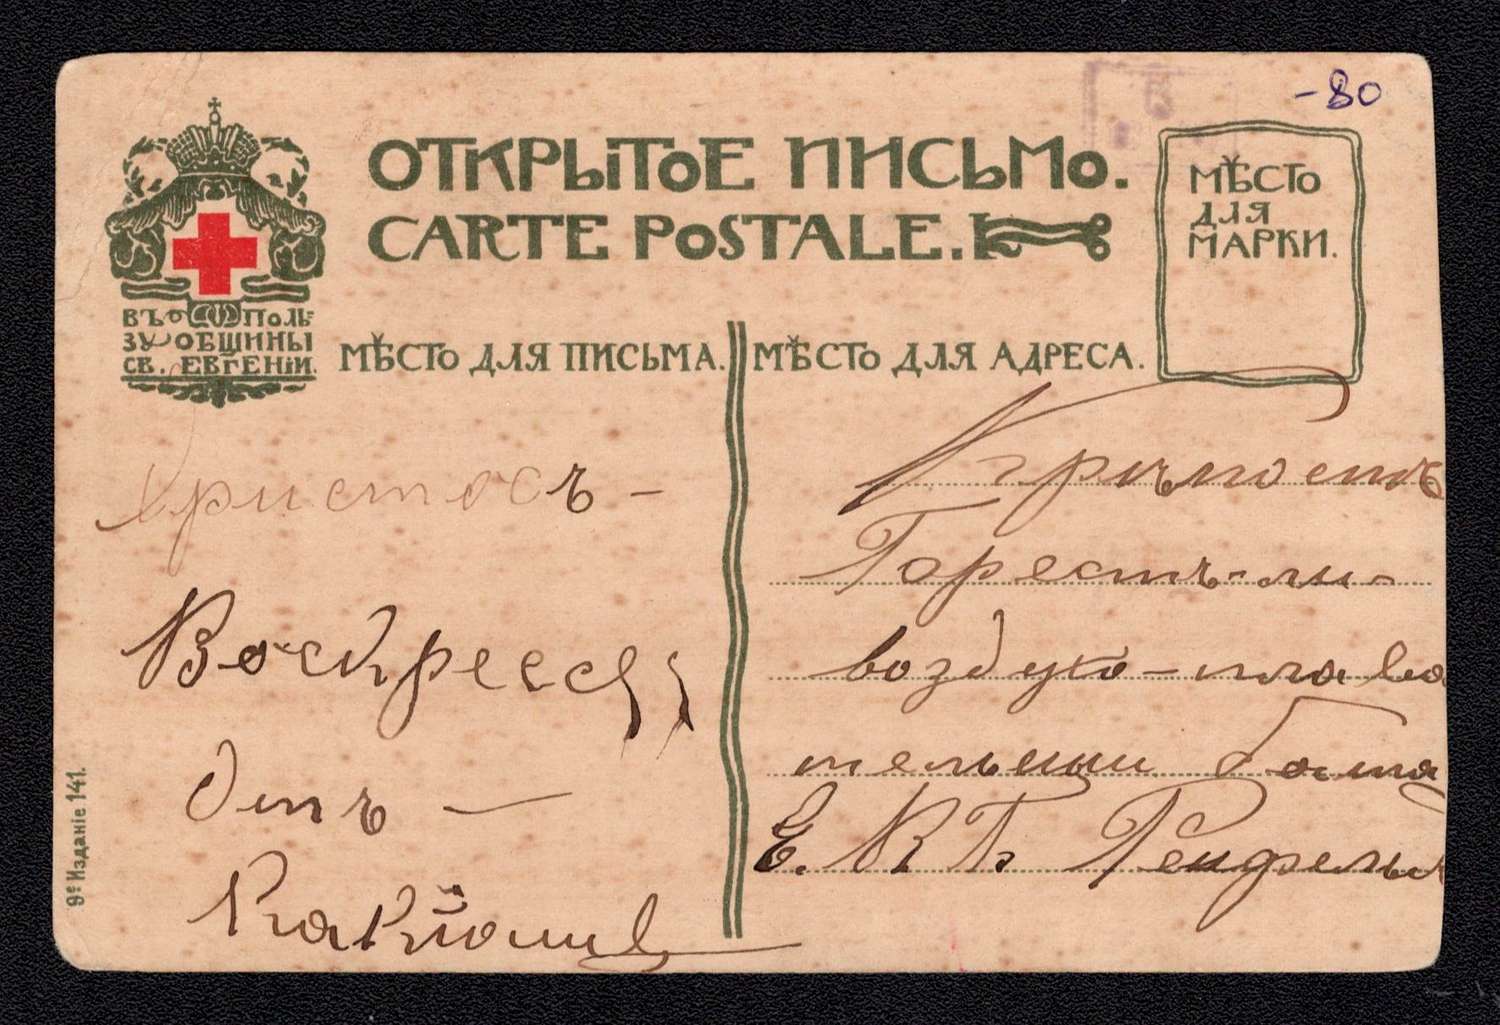 -80
ОТКРЫТОЕ ПИСЬМО.
CARTE POSTALE.
МѢСТО
ДЛЯ
МАРКИ.
ВЪ ПОЛЬ=
ЗУ ОБЩИНЫ
СВ. ЕВГЕНІИ.
МѢСТО ДЛЯ ПИСЬМА.
МѢСТО ДЛЯ АДРЕСА.
Христосъ -
Воскресе
Отъ -
Крѣпость
Брестъ-ли-
воздухо-плава
тельный бата
Е. В Б
9е Изданіе 141.